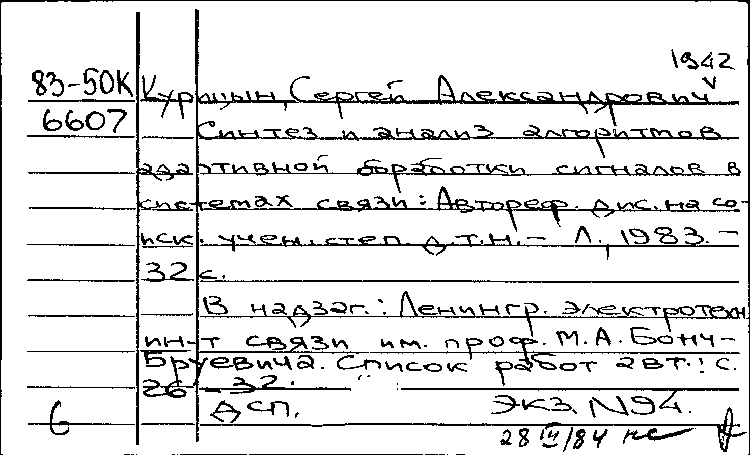 1942
83-50К Курицын, Сергей Александрович
6607 Синтез и анализ алгоритмов
адаптивной обработки сигналов в
системах связи: Автореф. дис. на со-
иск. учен. степ. д.т.н. - Л., 1983. -
32 с.
В надзаг.: Ленингр. электротехн.
ин-т связи им. проф. М.А. Бонч-
Бруевича. Список работ авт.: с.
26-32.
6 ДСП. ЭКЗ. N94.
28 III/84 нс